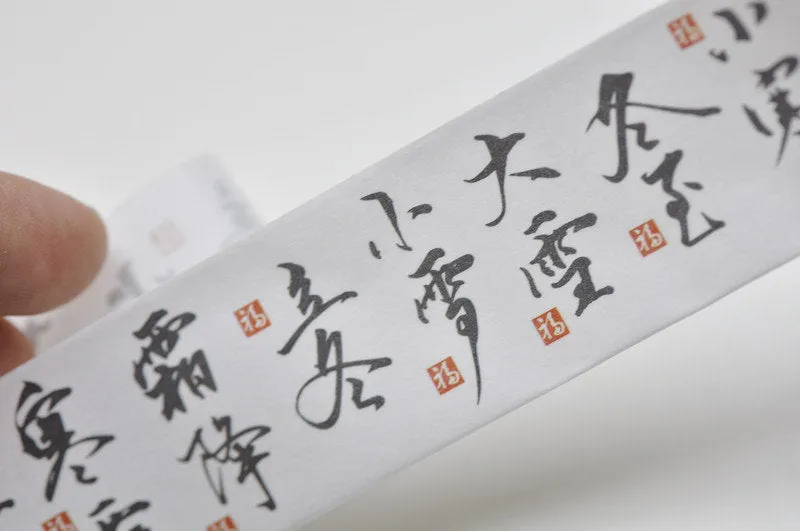 寒露
霜降
福
立冬
福
小雪
福
大雪
福
冬至
福
小寒
福
福